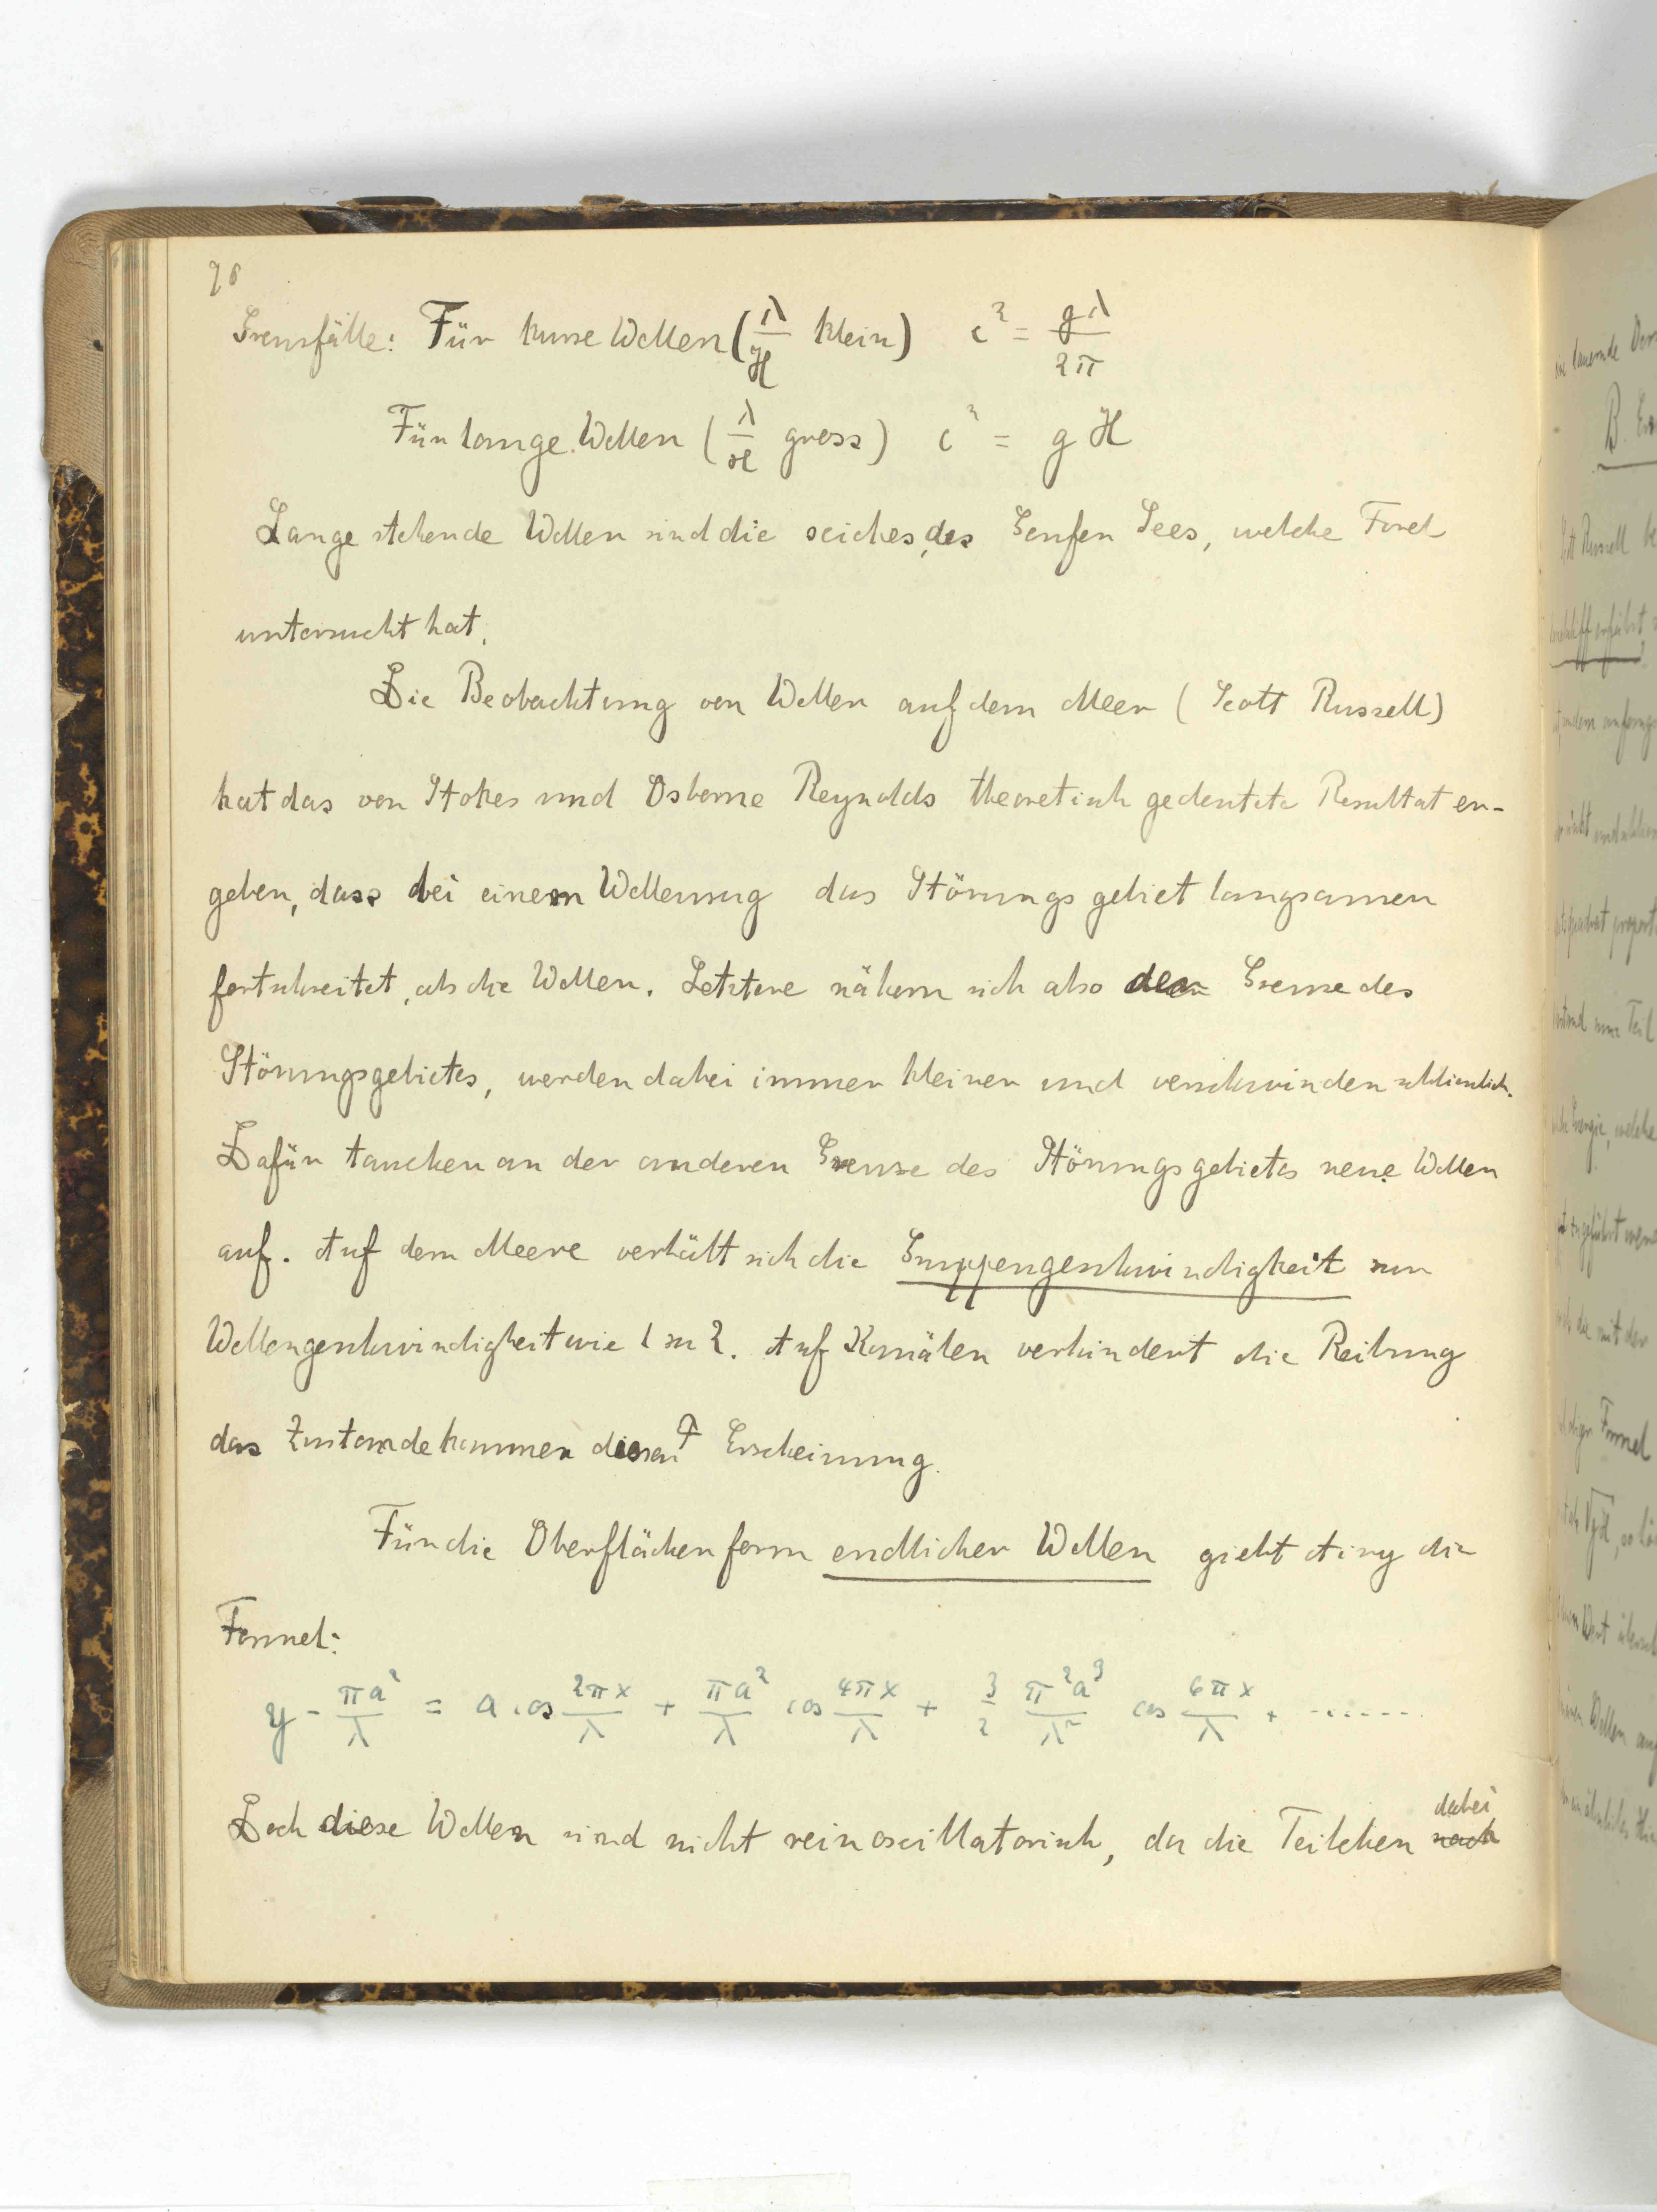 98
Grenzfälle: Für kurze Wellen (λ/H klein) c² = gλ/2π
Für lange Wellen (λ/H gross) c² = g H
Lange stehende Wellen sind die seiches des Genfer Sees, welche Forel
untersucht hat.
Die Beobachtung von Wellen auf dem Meer (Scott Russell)
hat das von Stokes und Osborne Reynolds theoretisch gedeutete Resultat er-
geben, dass bei einem Wellenzug das Störungsgebiet langsamer
fortschreitet, als die Wellen. Letztere nähern sich also der Grenze des
Störungsgebietes, werden dabei immer kleiner und verschwinden schliesslich.
Dafür tauchen an der anderen Grenze des Störungsgebietes neue Wellen
auf. Auf dem Meere verhält sich die Gruppengeschwindigkeit zur
Wellengeschwindigkeit wie 1 zu 2. Auf Kanälen verhindert die Reibung
das Zustandekommen dieser Erscheinung.
Für die Oberflächenform endlicher Wellen giebt Airy die
Formel:
y - πa²/λ = a cos 2πx/λ + πa²/λ cos 4πx/λ + 3/2 π²a³/λ² cos 6πx/λ + .......
dabei
Doch diese Wellen sind nicht rein oscillatorisch, da die Teilchen nach
B.
Russell
Energie, welche
Teil
Formel